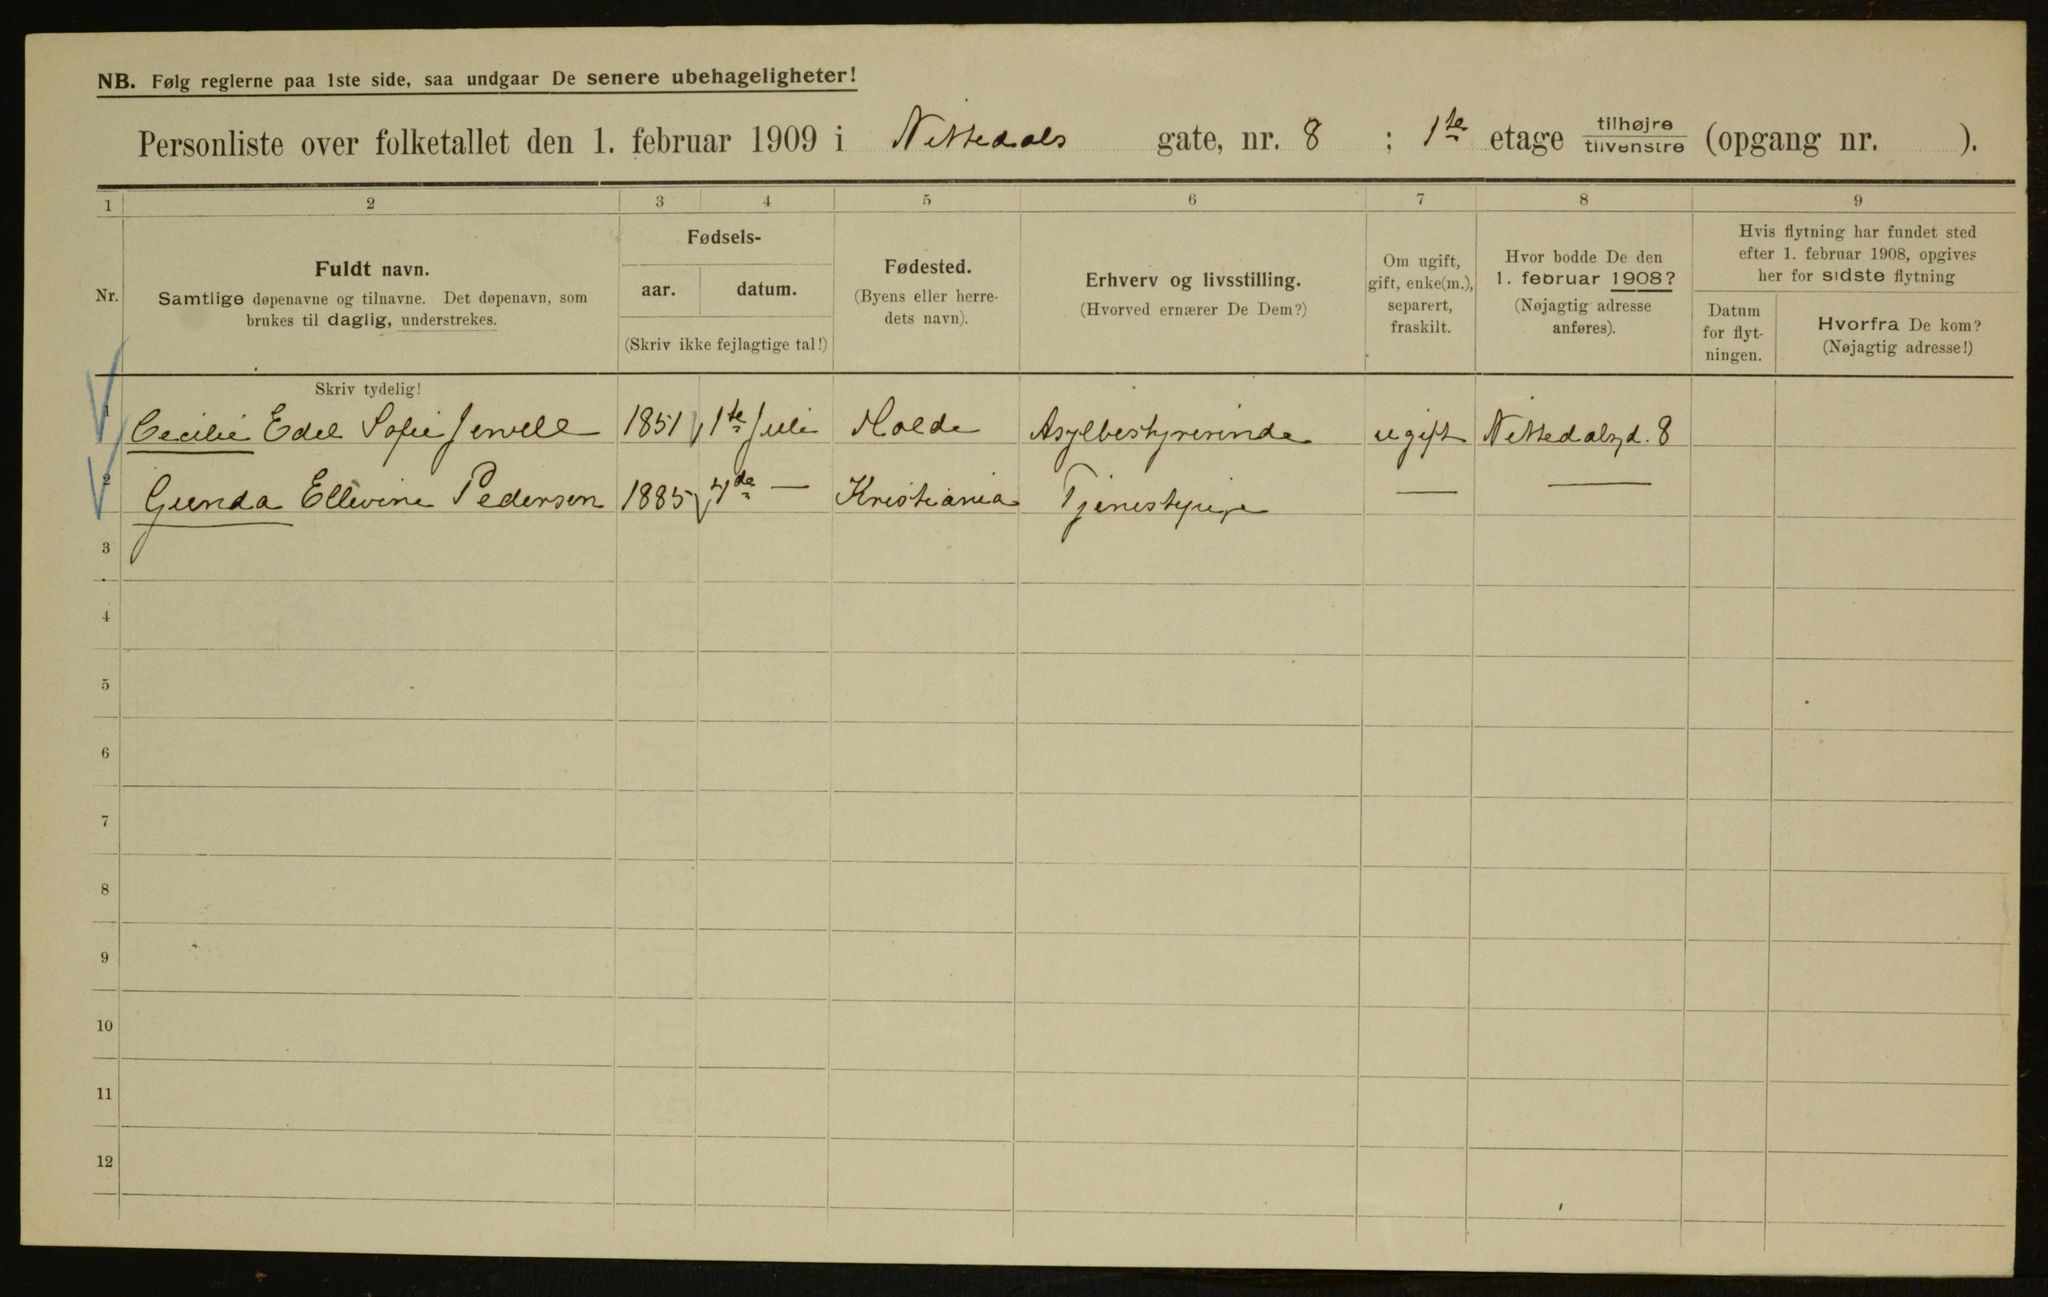 NB. Følg reglerne paa 1ste side, saa undgaar De senere ubehageligheter!
Personliste over folketallet den 1. februar 1909 i Nittedals gate, nr. 8 ; 1te etage tilhøjre tilvenstre (opgang nr. ).
1 2 3 4 5 6 7 8 9
Nr.
Fuldt navn.
Samtlige døpenavne og tilnavne. Det døpenavn, som
brukes til daglig, understrekes.
Fødsels-
aar. datum.
(Skriv ikke fejlagtige tal!)
Fødested.
(Byens eller herre-
dets navn).
Erhverv og livsstilling.
(Hvorved ernærer De Dem?)
Om ugift,
gift, enke(m.),
separert,
fraskilt.
Hvor bodde De den
1. februar 1908?
(Nøjagtig adresse
anføres).
Hvis flytning har fundet sted
efter 1. februar 1908, opgives
her for sidste flytning
Datum
for flyt-
ningen.
Hvorfra De kom?
(Nøjagtig adresse!)
Skriv tydelig!
1 Cecilie Edel Sofie Jervell 1851 1te Juli Molde Asylbestyrerinde ugift Nittedalsgd. 8
2 Gunda Ellevine Pedersen 1885 7de — Kristiania Tjenestepige — —
3
4
5
6
7
8
9
10
11
12